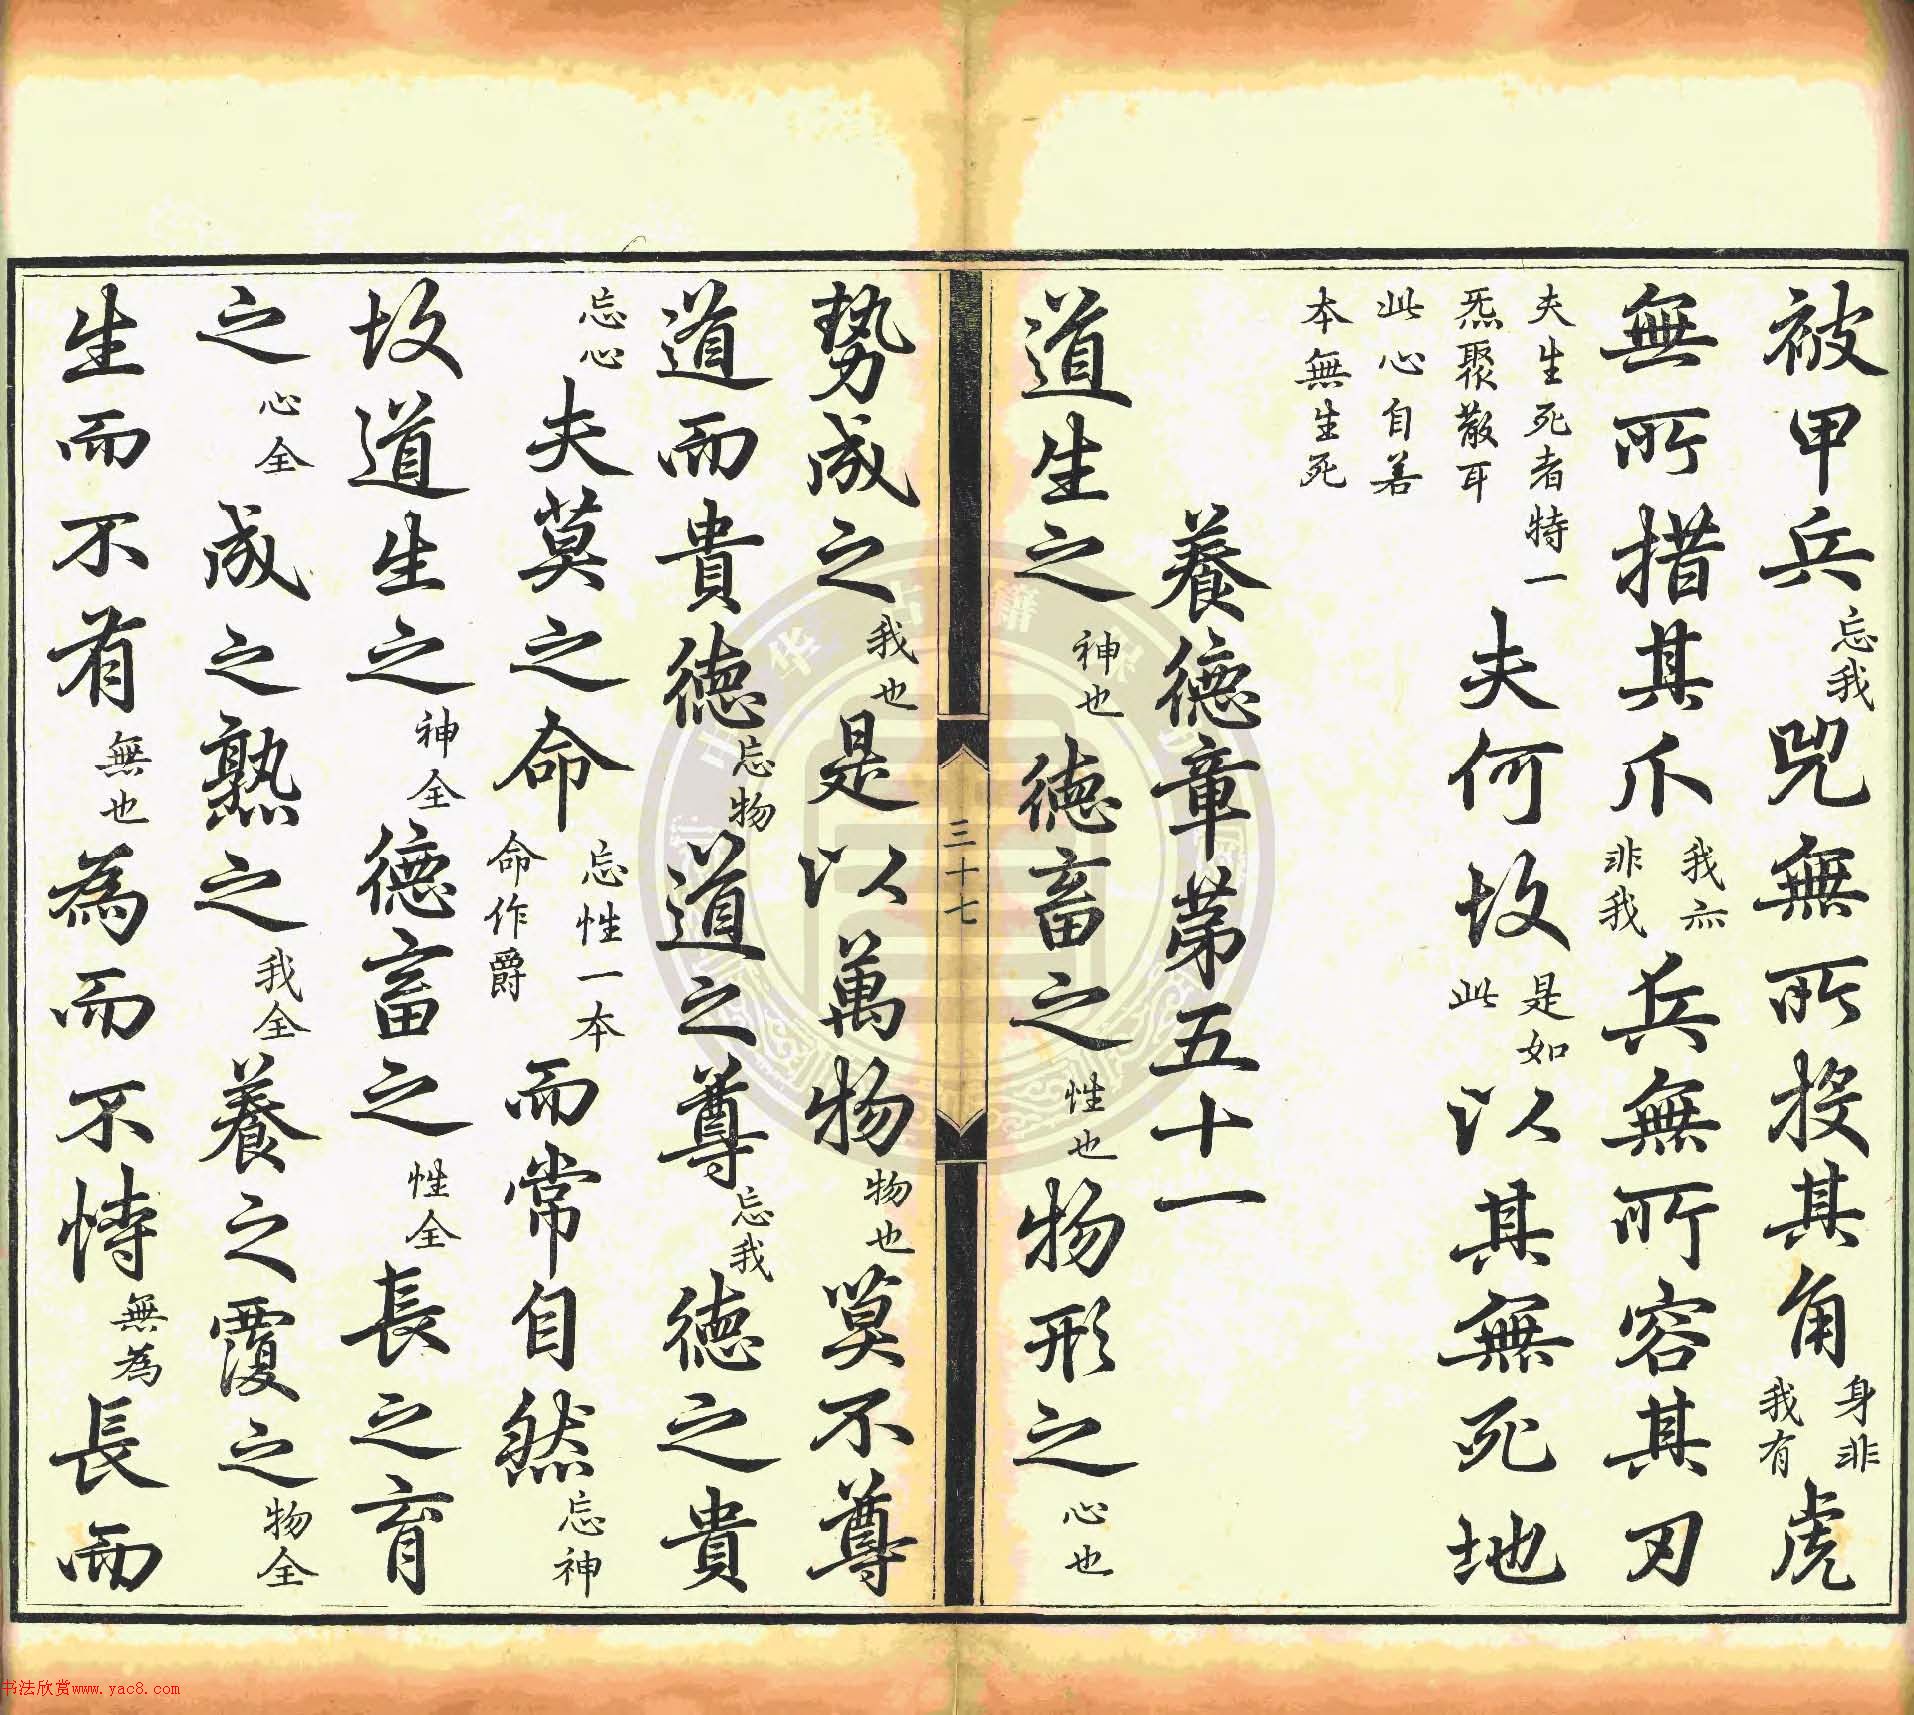 被甲兵忘我兕無所投其角身非我有虎
無所措其爪我亦非我兵無所容其刃
夫何故是如此以其無死地
夫生死者特一
炁聚散耳
此心自若
本無生死
養德章第五十一
道生之神也德畜之性也物形之心也
三十七
勢成之我也是以萬物物也莫不尊
道而貴德忘物道之尊忘我德之貴
忘心夫莫之命忘性一本命作爵而常自然忘神
故道生之神全德畜之性全長之育
之心全成之熟之我全養之覆之物全
生而不有無也為而不恃無為長而
书法欣赏www.yac8.com